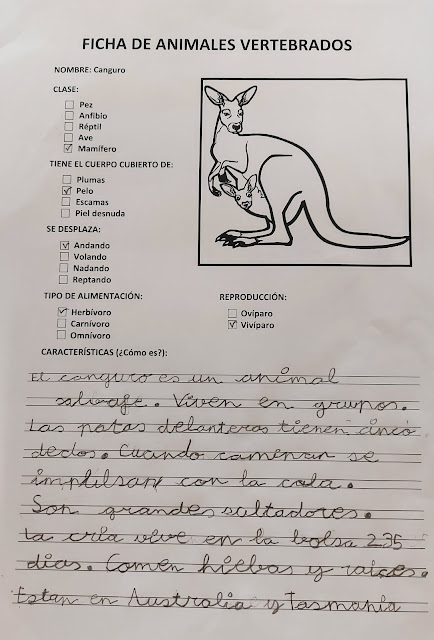 FICHA DE ANIMALES VERTEBRADOS
NOMBRE: Canguro
CLASE:
Pez
Anfibio
Réptil
Ave
Mamífero
TIENE EL CUERPO CUBIERTO DE:
Plumas
Pelo
Escamas
Piel desnuda
SE DESPLAZA:
Andando
Volando
Nadando
Reptando
TIPO DE ALIMENTACIÓN:
Herbívoro
Carnívoro
Omnívoro
REPRODUCCIÓN:
Ovíparo
Vivíparo
CARACTERÍSTICAS (¿Cómo es?):
El canguro es un animal
salvafe. Viven en grupos.
Las patas delanteras tienen cinco
dedos. Cuando caminan se
implilsan con la cola.
Son grandes saltadores.
La cría vive en la bolsa 235
dias. Comen hiebas y raices.
Estan en Australia y Tasmania